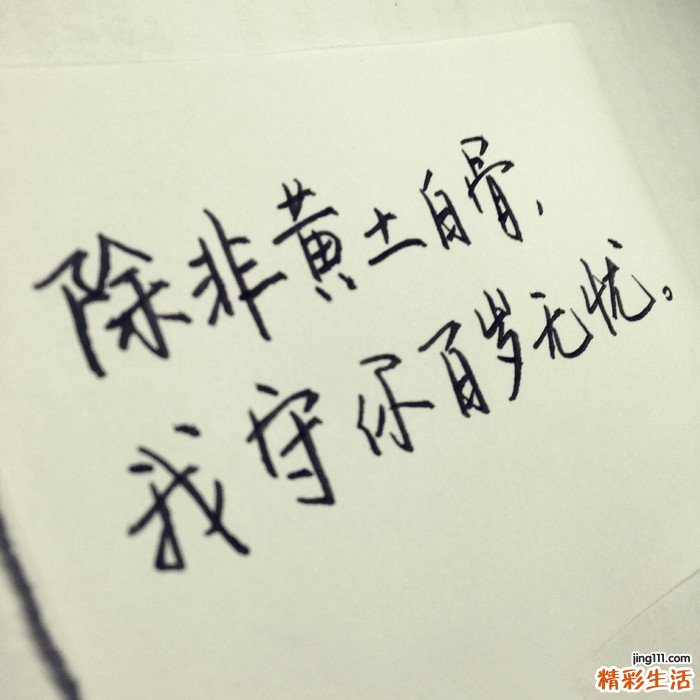 除非黄土白骨，
我守你百岁无忧。
jing111.com
精彩生活